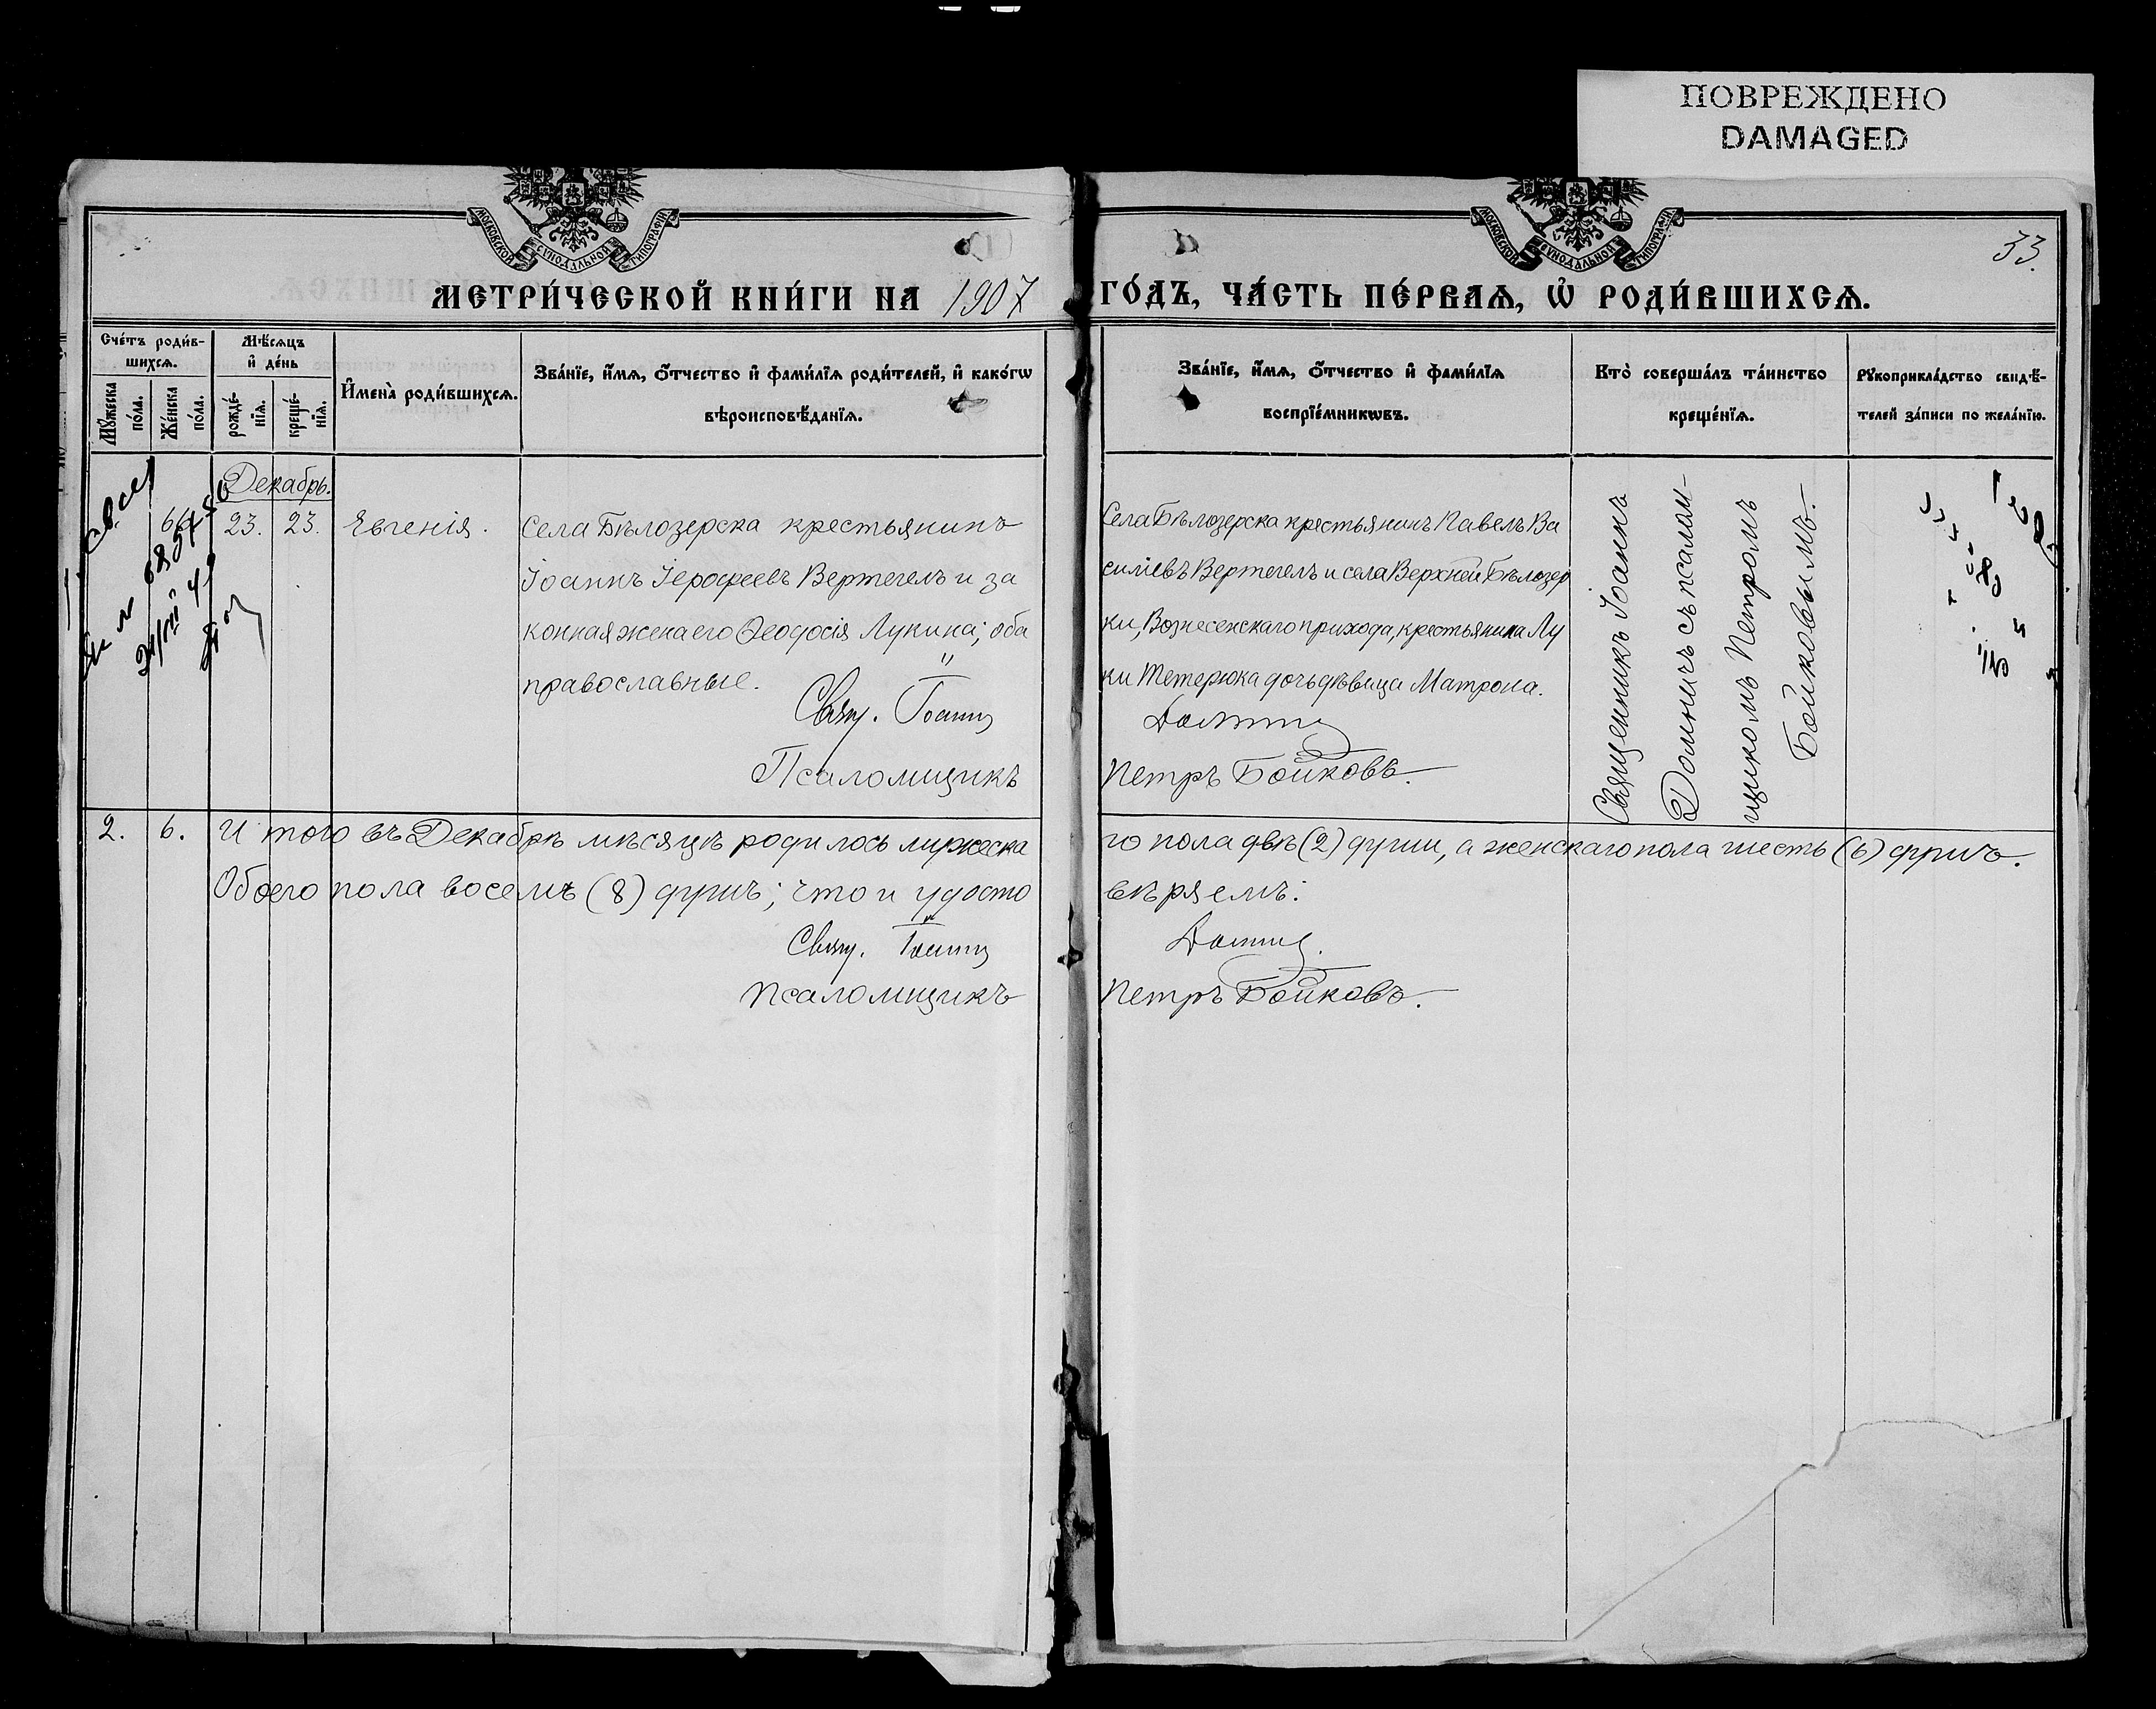 ПОВРЕЖДЕНО
DAMAGED
МОСКОВСКОЙ СѴНОДАЛЬНОЙ ТИПОГРАФІИ
МОСКОВСКОЙ СѴНОДАЛЬНОЙ ТИПОГРАФІИ
33.
МЕТРИ́ЧЕСКОЙ КНИ́ГИ НА 1907 ГО́ДЪ, ЧА́СТЬ ПЕ́РВАѦ, Ѡ҆ РОДИ́ВШИХСѦ.
Сче́тъ роди́в-
шихсѧ.
Мꙋ́жеска
по́ла.
Же́нска
по́ла.
Мѣ́сѧцъ
и҆ де́нь
рожде́-
нїѧ.
креще́-
нїѧ.
И҆мена̀ роди́вшихсѧ.
Зва́нїе, и҆́мѧ, ѻ҆́тчество и҆ фами́лїѧ роди́телей, и҆ како́гѡ
вѣроисповѣ́данїѧ.
Зва́нїе, и҆́мѧ, ѻ҆́тчество и҆ фами́лїѧ
воспрїе́мникѡвъ.
Кто̀ соверша́лъ та́инство
креще́нїѧ.
Рꙋкоприкла́дство свидѣ́-
телей за́писи по жела́нїю.
Декабрь.
66
23.
23.
Евгенія.
Села Бѣлозерска крестьянинъ
Іоаннъ Іерофеевъ Вертегелъ и за
конная жена его Ѳеодосія Лукина; оба
православные.
Свящ. Іоаннъ
Псаломщикъ
Села Бѣлозерска крестьянинъ Павелъ Ва
силіевъ Вертегелъ и села Верхней Бѣлозер
ки, Вознесенскаго прихода, крестьянина Лу
ки Тетерюка дочь дѣвица Матрона.
Домнич
Петръ Бойковъ.
Священникъ Іоаннъ
Домничъ съ псалом-
щикомъ Петромъ
Бойковымъ.
2. 6. И того въ Декабрѣ мѣсяцѣ родилось мужеска го пола двѣ (2) души, а женскаго пола шесть (6) душъ.
Обоего пола восемъ (8) душъ; что и удосто вѣряемъ:
Свящ. Іоаннъ Домнич.
Псаломщикъ Петръ Бойковъ.